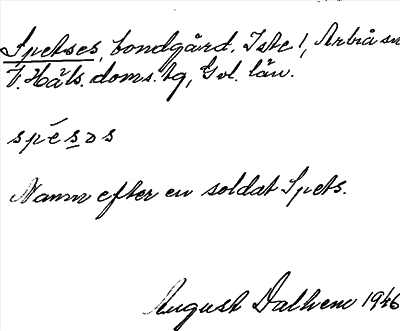 Spetses, bondgård. Iste!, Arbrå sn
V. Häls. doms. tg, Gvl. län.
spésɔs
Namn efter en soldat Spets.
August Dalhem 1946